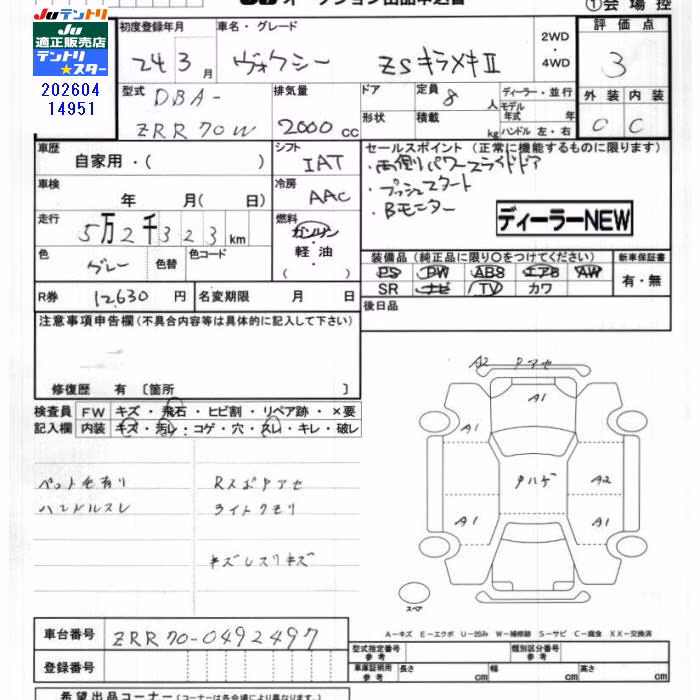 JUテントリ ①会場控
JU
適正販売店
テントリ
★スター
202604
14951
初度登録年月 24年3月
車名・グレード ヴォクシー ZSキラメキⅡ
2WD・4WD
評価点 3
型式 DBA-
ZRR70W
排気量 2000cc
ドア
形状
定員 8人
積載 kg
ディーラー・並行
モデル年式 年
ハンドル 左・右
外装 C
内装 C
車歴 自家用・( )
シフト IAT
セールスポイント (正常に機能するものに限ります)
・両側パワースライドドア
・プッシュスタート
・Bモニター
ディーラーNEW
車検 年 月(日)
冷房 AAC
走行 5万2千323km
燃料 ガソリン
軽油
( )
色 グレー 色替 色コード
装備品(純正品に限り○をつけてください)
PS PW ABS エアB AW
SR ナビ TV カワ
新車保証書
有・無
R券 12,630円
名変期限 月 日
後日品
注意事項申告欄(不具合内容等は具体的に記入して下さい)
修復歴 有 〔箇所 〕
検査員 FW キズ・飛石・ヒビ割・リペア跡・×要
記入欄 内装 キズ・汚レ・コゲ・穴・スレ・キレ・破レ
ペット毛有り
ハンドルスレ
Rスポアアセ
ライトクモリ
キズレスリキズ
A2 アアセ
A1
A1
A2
A1
A1
アハゲ
スペア
車台番号 ZRR70-0492497
登録番号
A-キズ E-エクボ U-凹み W-補修跡 S-サビ C-腐食 XX-交換済
型式指定番号 参考
類別区分番号 参考
車庫証明用 参考 長さ cm 幅 cm 高さ cm
希望出品コーナー(コーナーは各会場により異なります)